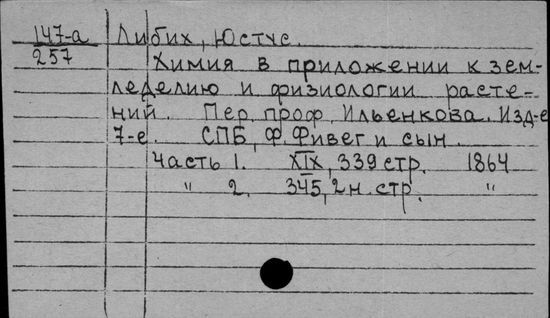 147-а Либих, Юстус.
257 Химия в приложении к зем-
леделию и физиологии расте-
ний. Пер. проф. Ильенкова. Изд-е
7-е. СПБ, Ф. Фивег и сын.
Часть 1. XIX, 339 стр. 1864
" 2. 345, 2 н. стр. "